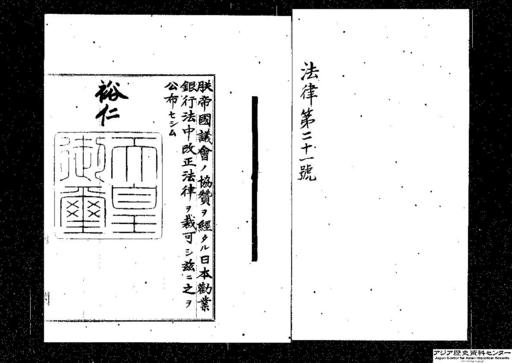 法律第二十一號
朕帝國議會ノ協贊ヲ經タル日本勸業
銀行法中改正法律ヲ裁可シ茲ニ之ヲ
公布セシム
裕仁
天皇
御璽
アジア歴史資料センター
Japan Center for Asian Historical Records